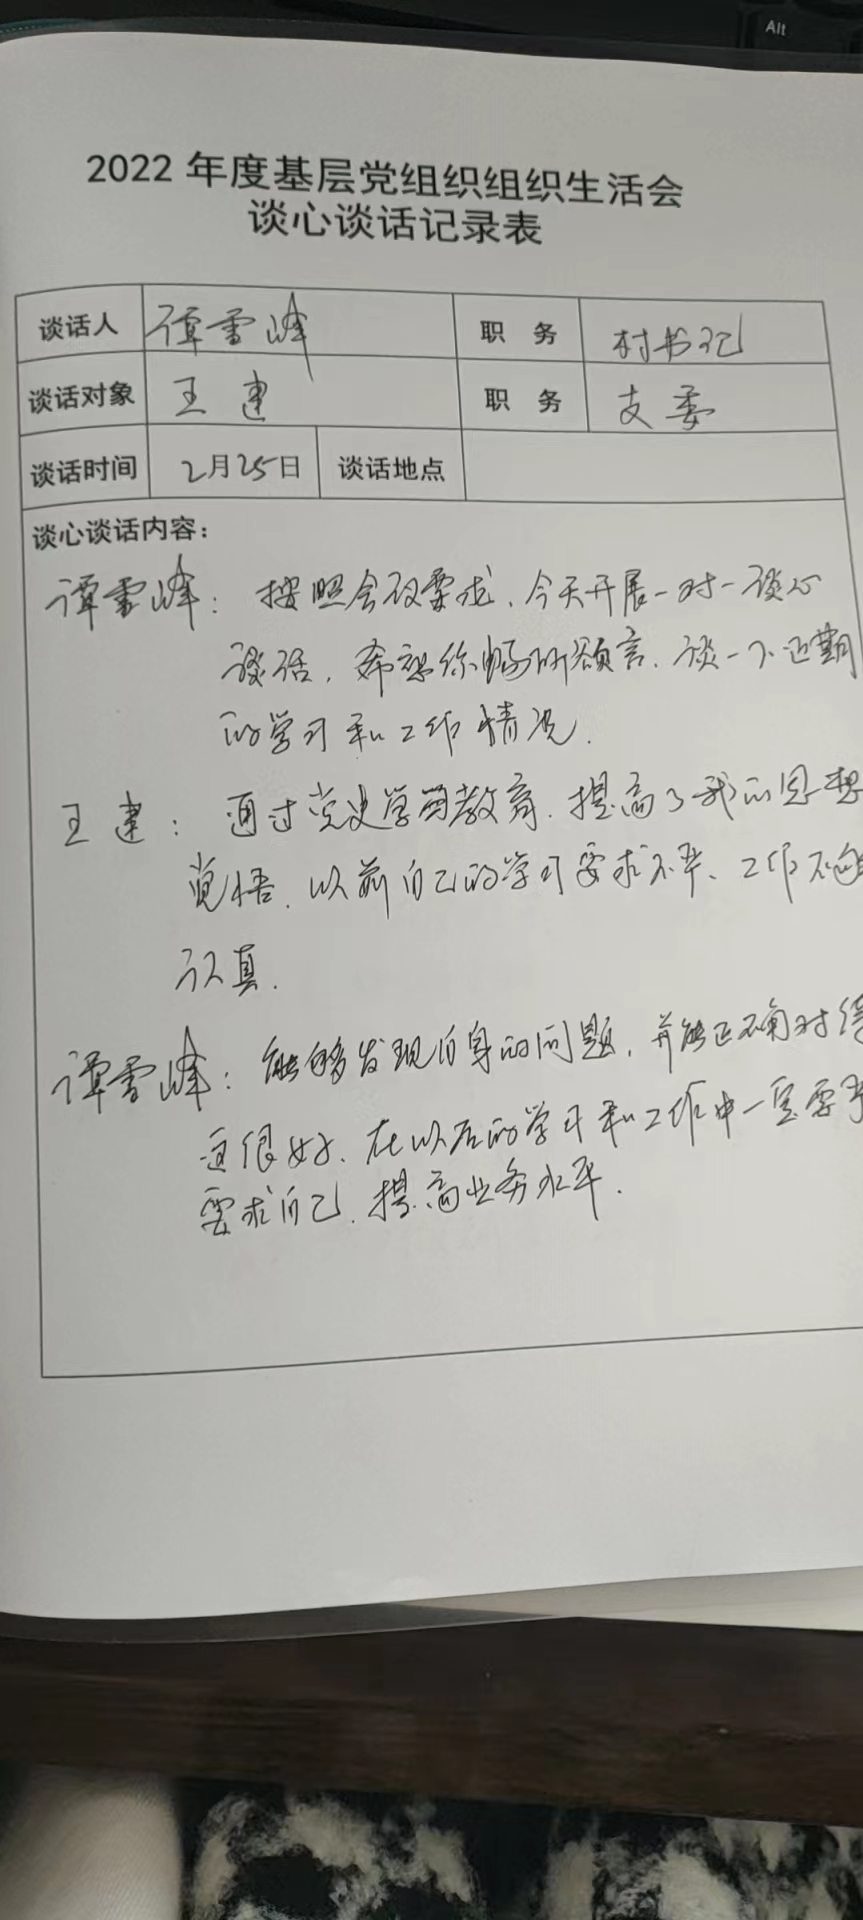 Alt
2022 年度基层党组织组织生活会
谈心谈话记录表
谈话人 谭雪峰 职 务 村书记
谈话对象 王建 职 务 支委
谈话时间 2月25日 谈话地点
谈心谈话内容：
谭雪峰：按照会议要求，今天开展一对一谈心
谈话，希望你畅所欲言，谈一下近期
的学习和工作情况.
王建：通过党史学习教育，提高了我的思想
觉悟，以前自己的学习要求不严、工作不够
认真.
谭雪峰：能够发现自身的问题，并能正确对待
这很好，在以后的学习和工作中一定要严
要求自己，提高业务水平.